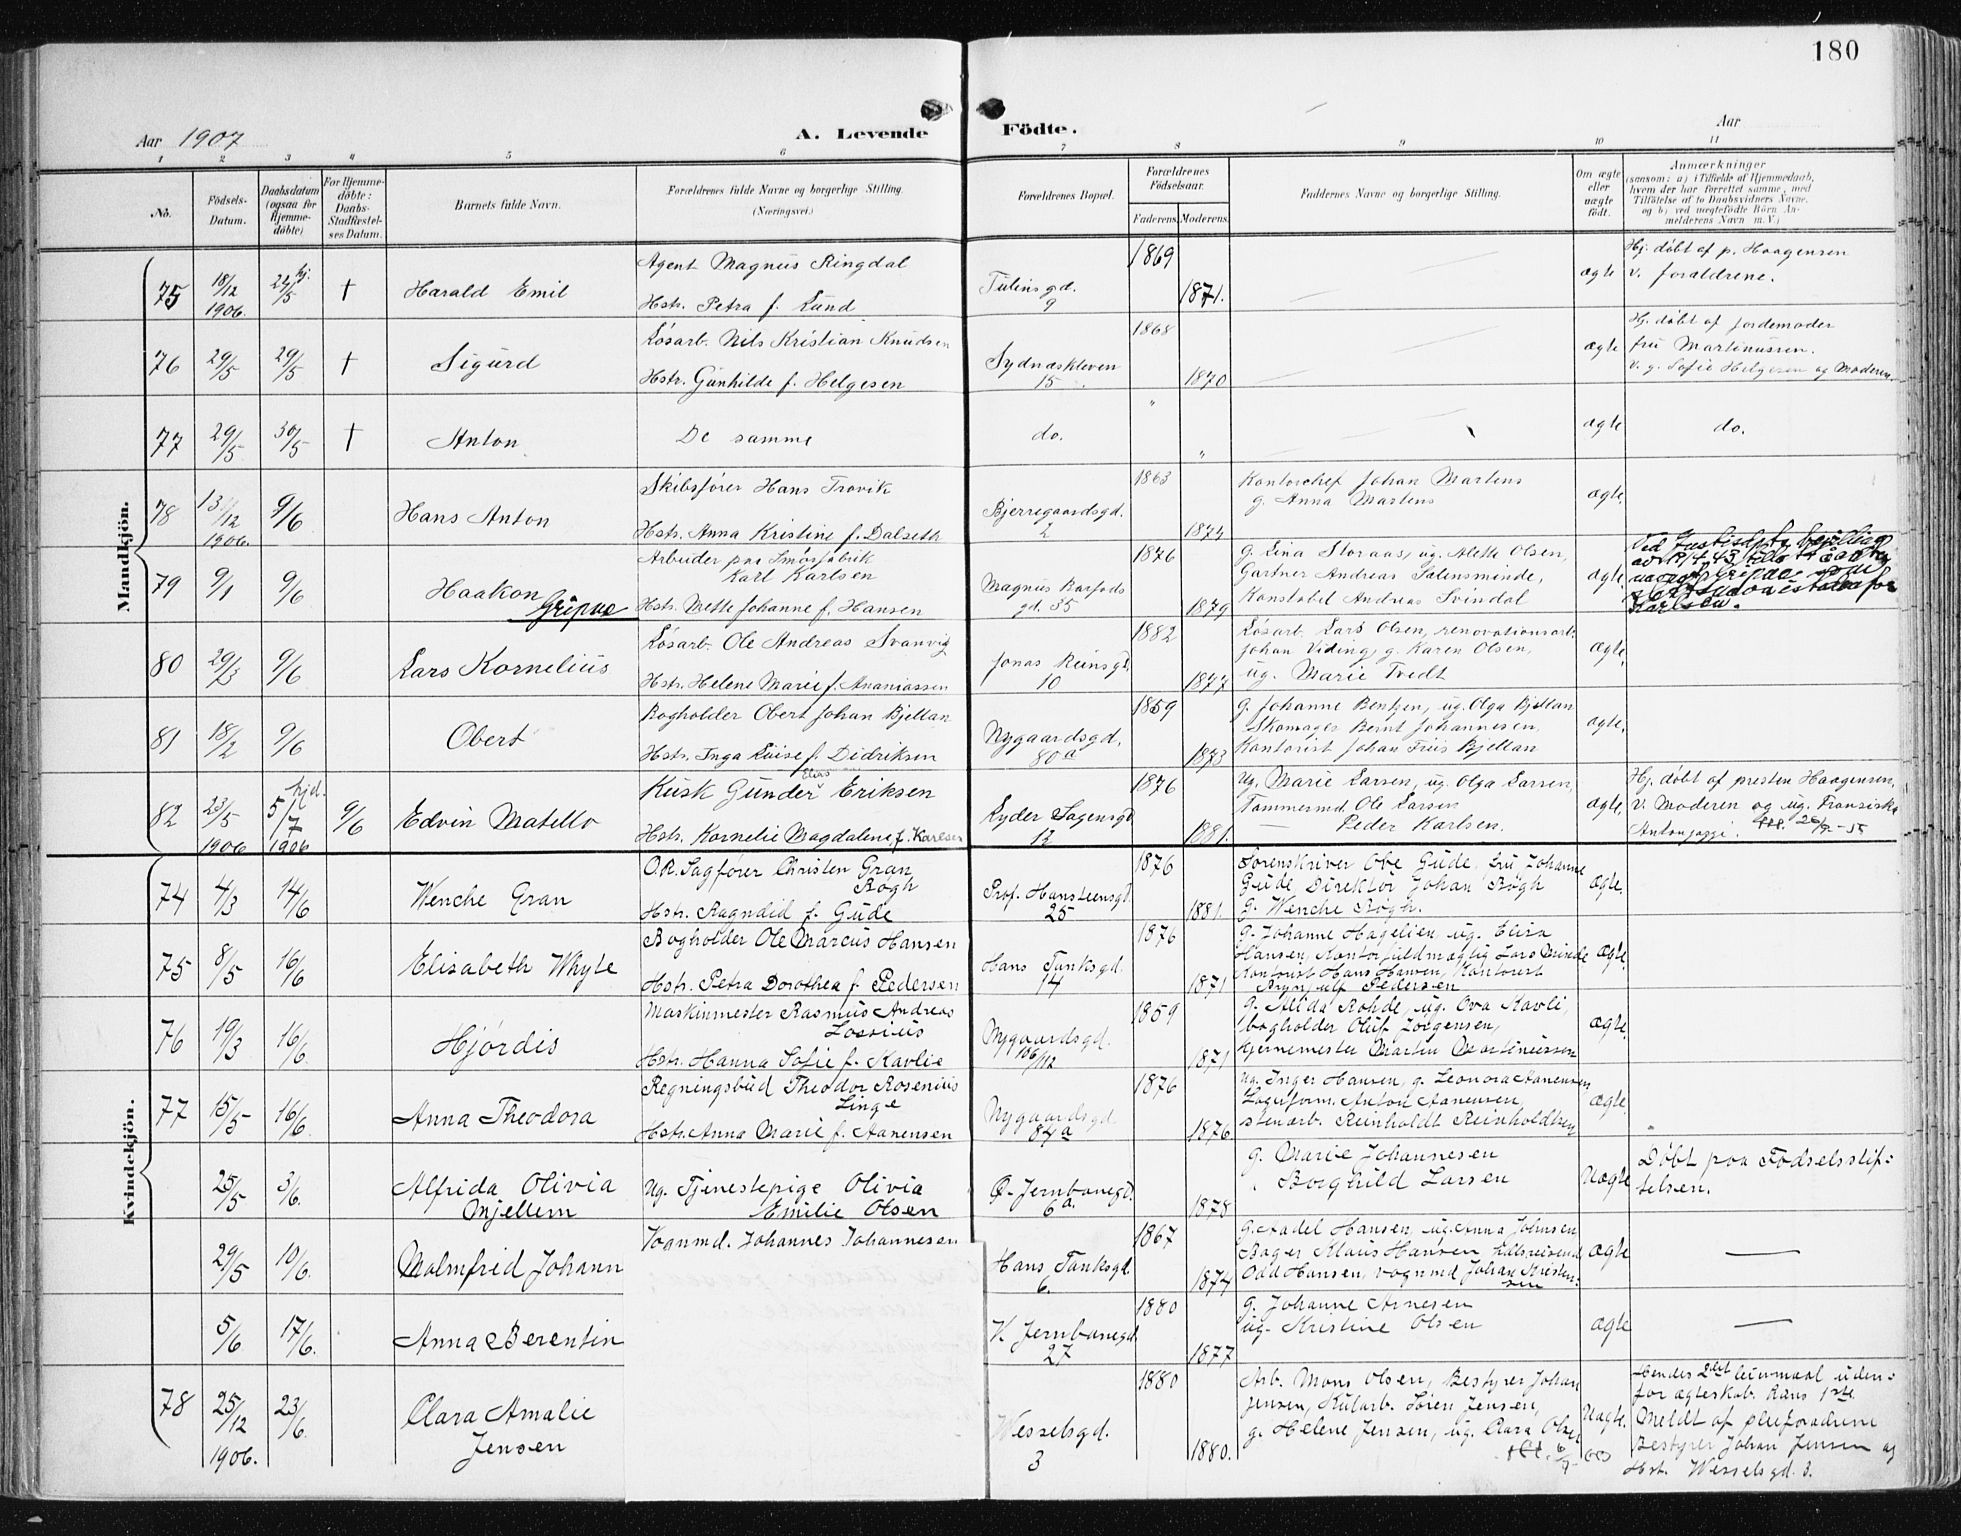 180
Aar 1907
A. Levende Födte.
Aar
1 2 3 4 5 6 7 8 9 10 11
No.
Födsels-Datum.
Daabsdatum (ogsaa for Hjemme-döbte)
For Hjemme-döbte: Daabs-Stadfæstel-ses Datum.
Barnets fulde Navn.
Forældrenes fulde Navne og borgerlige Stilling. (Næringsvei.)
Forældrenes Bopæl.
Forældrenes Födselsaar.
Faderens. Moderens.
Faddernes Navne og borgerlige Stilling.
Om ægte eller uægte födt.
Anmærkninger
(saasom: a) i Tilfælde af Hjemmedaab,
hvem der har forrettet samme, med
Tilföielse af to Daabsvidners Navne,
og b) ved uægtefödte Börn An-
melderens Navn m. V.)
Mandkjön.
75 18/12 1906. 24/5 hj. † Harald Emil
Agent Magnus Ringdal
Hstr. Petra f. Lund
Tulinsgd. 9
1869 1871. ægte
Hj. døbt af p. Haagensen
v. forældrene.
76 29/5 29/5 † Sigurd
Løsarb. Nils Kristian Knudsen
Hstr. Gunhilde f. Helgesen
Sydnæskleven 15
1868 1870 ægte
Hj. døbt af jordemoder
fru Martinussen.
v. g. Sofie Helgesen og Moderen.
77 29/5 30/5 † Anton
De samme
do. " " ægte do.
78 13/12 1906. 9/6 Hans Anton
Skibsfører Hans Trovik
Hstr. Anna Kristine f. Dalseth
Bjerregaardsgd. 2
1863 1874
Kontorchef Johan Martens
g. Anna Martens
ægte.
79 9/1 9/6 Haakon Gripne
Arbeider paa Smørfabrik
Karl Karlsen
Hstr. Mette Johanne f. Hansen
Magnus Barfods gd. 35
1876 1879
g. Lina Storaas, ug. Aletta Olsen,
Gartner Andreas Salensminde,
Konstabel Andreas Svindal
ægte
Karlsen.
80 29/3 9/6 Lars Kornelius
Løsarb. Ole Andreas Svanvig
Hstr. Helene Marie f. Ananiassen
Jonas Reinsgd. 10
1882 1877
Løsarb. Lars Olsen, renovationsarb.
Johan Viding, g. Karen Olsen,
ug. Marie Tvedt
ægte.
81 18/2 9/6 Obert
Bogholder Obert Johan Bjellan
Hstr. Inga Luise f. Didriksen
Nygaardsgd. 80a
1859 1873
g. Johanne Bentzen, ug. Olga Bjellan
Skomager Bernt Johannesen,
Kontorist Johan Friis Bjellan
ægte.
82 23/5 1906 5/7 1906 hjd. 9/6 Edvin Matello
Kusk Gunder Elias Eriksen
Hstr. Kornelie Magdalene, f. Karlsen
Eyder Sagensgd 12
1876 1881.
ug. Marie Larsen, ug. Olga Larsen,
Tømmermd. Ole Larsen
— Peder Karlsen.
ægte.
Hj. døbt af presten Haagensen,
v. Moderen og ug. Fransiska
Kvindekjön.
74 4/3 14/6 Wenche Gran
O.R. Sagfører Christen Gran Bøgh
Hstr. Ragndid f. Gude
Prof. Hansteensgd. 25
1876 1881.
Sorenskriver Ove Gude, fru Johanne
Gude, Direktør Johan Bøgh
g. Wenche Bøgh.
ægte.
75 8/5 16/6 Elisabeth Whyte
Bogholder Ole Marcus Hansen
Hstr. Petra Dorothea f. Pedersen
Hans Tanksgd. 14
1876 1871
g. Johanne Hagelien, ug. Elisa
Hansen, Kontorfuldmægtig Lars Brinde
Kontorist Hans Hansen, Kontorist
Brynjulf Pedersen
ægte.
76 19/3 16/6. Hjördis
Maskinmester Rasmus Andreas
Lossius
Hstr. Hanna Sofie f. Kavlie
Nygaardsgd. 106/112
1859 1871
g. Alida Rohde, ug. Ova Kavli,
bogholder Oluf Jörgensen,
Hjernemester Martin Martinussen
ægte.
77 15/5 16/6. Anna Theodora
Regningsbud Theodor Rosenius
Linge
Hstr. Anna Marie f. Aanensen
Nygaardsgd. 84a
1876 1876
ug. Inger Hansen, g. Leonora Aanensen,
Lagerform. Anton Aanensen,
stenarb. Reinholdt Reinholdtsen
ægte.
25/5 3/6. Alfrida Olivia Mjellem
Ug. Tjenestepige Olivia
Emilie Olsen
Ø. Jernbanegd. 6a.
1878
g. Marie Johannesen
Borghild Larsen
Uægte
Døbt paa Fødselsstif-
telsen.
29/5 10/6. Malmfrid Johann
Vognmd. Johannes Johannesen
Hans Tanksgd. 6.
1867 1874
g. Aadel Hansen, ug. Anna Johnsen
Bager Klaus Hansen, hdlsreisende
Odd Hansen, vognmd Johan Kristen-
sen
ægte —
5/6 17/6. Anna Berentin
K. Jernbanegd. 27
1880 1877
g. Johanne Arnesen
ug. Kristine Olsen
ægte —
78 25/12 1906. 23/6. Clara Amalie Jensen
Wesselsgd. 3
1880 1880.
Arb. Mons Olsen, Bestyrer Johan
Jensen, Kularb. Søren Jensen,
g. Helene Jensen, ug. Clara Olsen
Uægte.
Hendes 2det leiermaal uden-
for ægteskab. Hans 1ste.
Meldt af pleiforældrene
Bestyrer Johan Jensen og
Hst. Wesselsgd. 3.